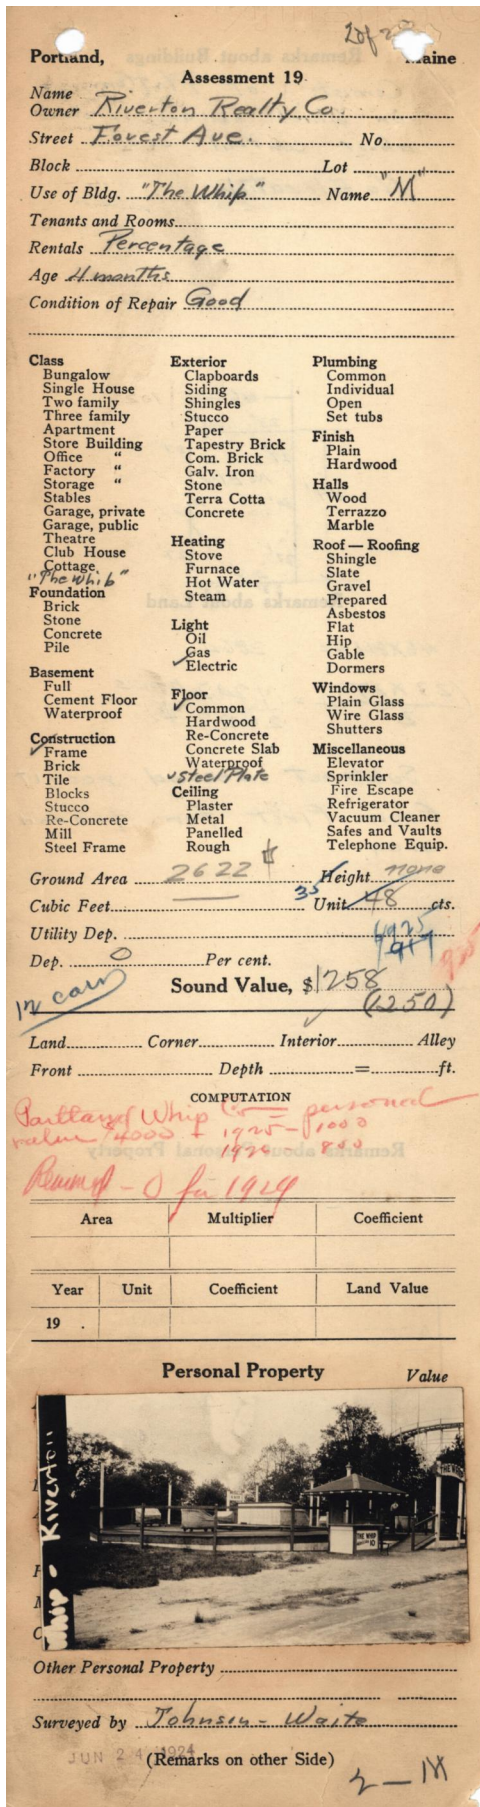 2 of 2
Portland, Maine
Assessment 19
Name
Owner Riverton Realty Co.
Street Forest Ave. No.
Block Lot
Use of Bldg. "The Whip" Name "M"
Tenants and Rooms
Rentals Percentage
Age 4 months
Condition of Repair Good
Class
Bungalow
Single House
Two family
Three family
Apartment
Store Building
Office "
Factory "
Storage "
Stables
Garage, private
Garage, public
Theatre
Club House
Cottage
"The Whip"
Foundation
Brick
Stone
Concrete
Pile
Basement
Full
Cement Floor
Waterproof
Construction
✓ Frame
Brick
Tile
Blocks
Stucco
Re-Concrete
Mill
Steel Frame
Exterior
Clapboards
Siding
Shingles
Stucco
Paper
Tapestry Brick
Com. Brick
Galv. Iron
Stone
Terra Cotta
Concrete
Heating
Stove
Furnace
Hot Water
Steam
Light
Oil
Gas
✓ Electric
Floor
✓ Common
Hardwood
Re-Concrete
Concrete Slab
Waterproof
✓ Steel Plate
Ceiling
Plaster
Metal
Panelled
Rough
Plumbing
Common
Individual
Open
Set tubs
Finish
Plain
Hardwood
Halls
Wood
Terrazzo
Marble
Roof — Roofing
Shingle
Slate
Gravel
Prepared
Asbestos
Flat
Hip
Gable
Dormers
Windows
Plain Glass
Wire Glass
Shutters
Miscellaneous
Elevator
Sprinkler
Fire Escape
Refrigerator
Vacuum Cleaner
Safes and Vaults
Telephone Equip.
Ground Area 2622 Height none
Cubic Feet 35 Unit 48 cts.
Utility Dep.
Dep. 0 Per cent. 925
Sound Value, $1258
12 cars (1250)
Land Corner Interior Alley
Front Depth = ft.
COMPUTATION
Portland Whip Co personal
value $4000 1925 - 1000
1926 800
- 0 for 1929
Area Multiplier Coefficient
Year Unit Coefficient Land Value
19 .
Personal Property Value
Whip - Riverton
THE WHIP
THE WHIP
10
Other Personal Property
Surveyed by Johnson - Waite
JUN 24 1924
(Remarks on other Side)
2 - M